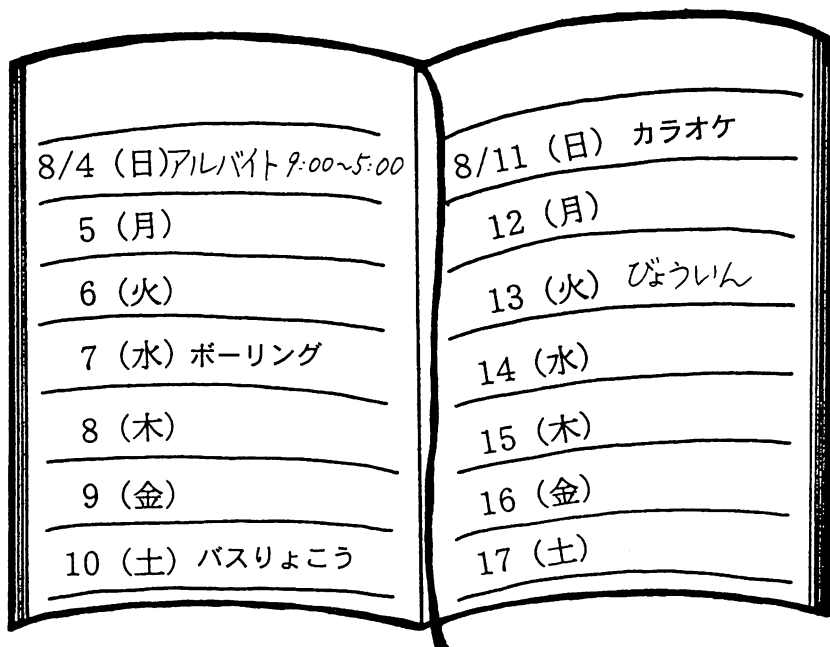 8/4（日）アルバイト 9:00~5:00
5（月）
6（火）
7（水）ボーリング
8（木）
9（金）
10（土）バスりょこう
8/11（日）カラオケ
12（月）
13（火）びょういん
14（水）
15（木）
16（金）
17（土）